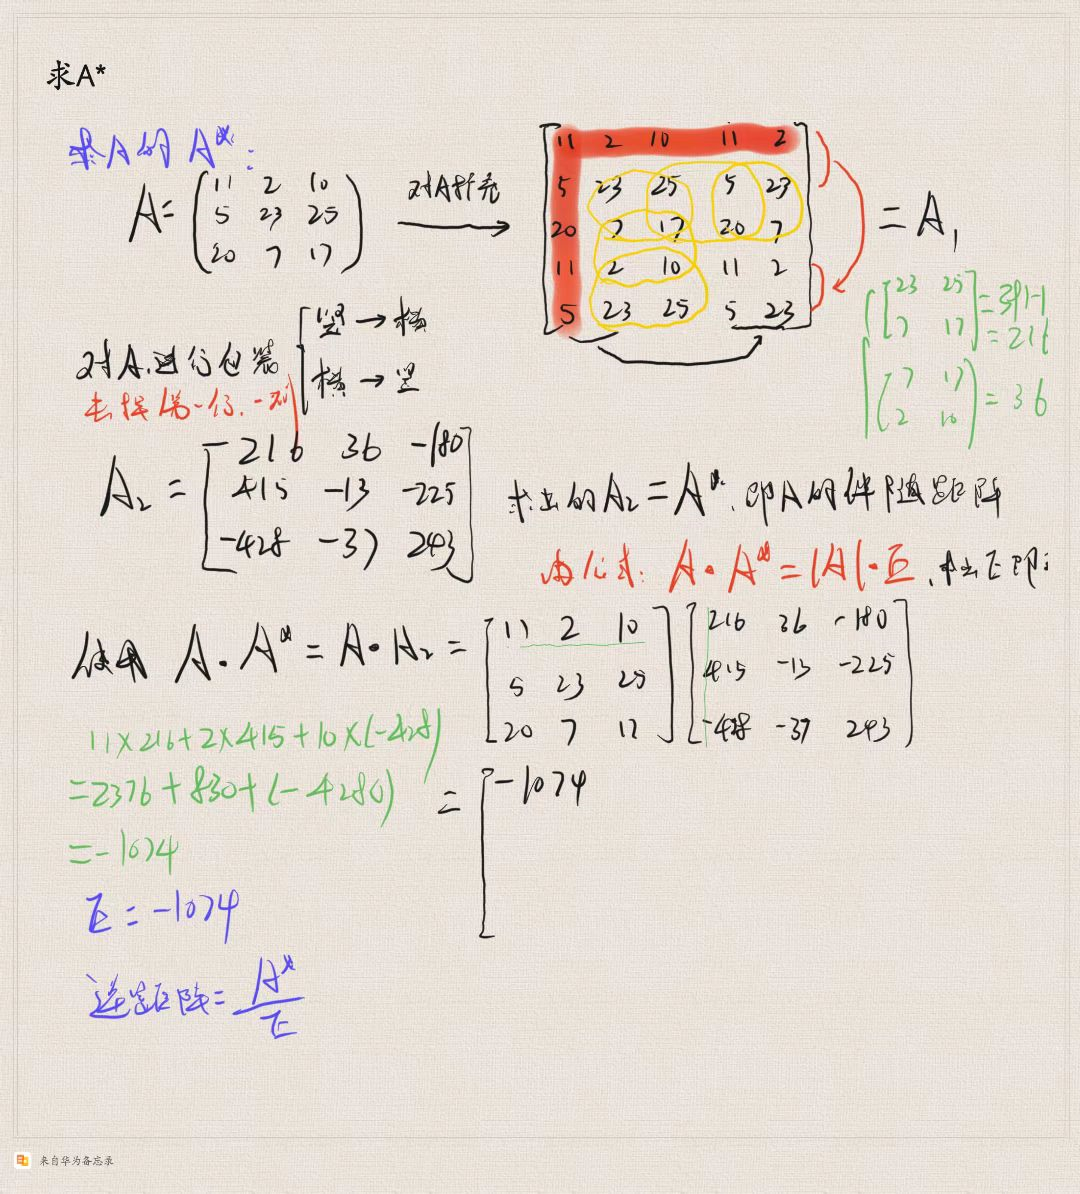 求A*
求A的 A*:
A= 11 2 10
5 23 25
20 7 17
对A扩充
11 2 10 11 2
5 23 25 5 23
20 7 17 20 7
11 2 10 11 2
5 23 25 5 23
= A₁
23 25
7 17
= 391-1
= 216
7 17
2 10
= 36
对A₁进行包装
竖→横
横→竖
去掉第一行.一列
A₂ = 216 36 -180
415 -13 -225
-428 -37 243
求出的A₂=A*,即A的伴随矩阵
由公式: A·A*=|A|·E,求出E即
使用 A·A* = A·A₂ =
11 2 10
5 23 25
20 7 17
216 36 -180
415 -13 -225
-428 -37 243
11×216+2×415+10×(-428)
=2376+830+(-4280)
=-1074
= -1074
E=-1074
逆矩阵= A*
E
来自华为备忘录